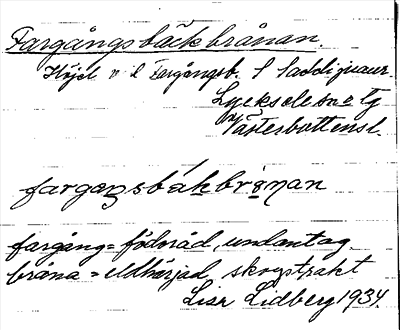 Fargångsbäckbrånan.
Höjd n. l. Fargångsb. S Saddijaur.
Lycksele sn o tg
Västerbottensl.
fargaŋsbäkbrånan
fargång = födoråd, undantag.
bråna = eldhärjad skogstrakt
Lisa Lidberg 1934.